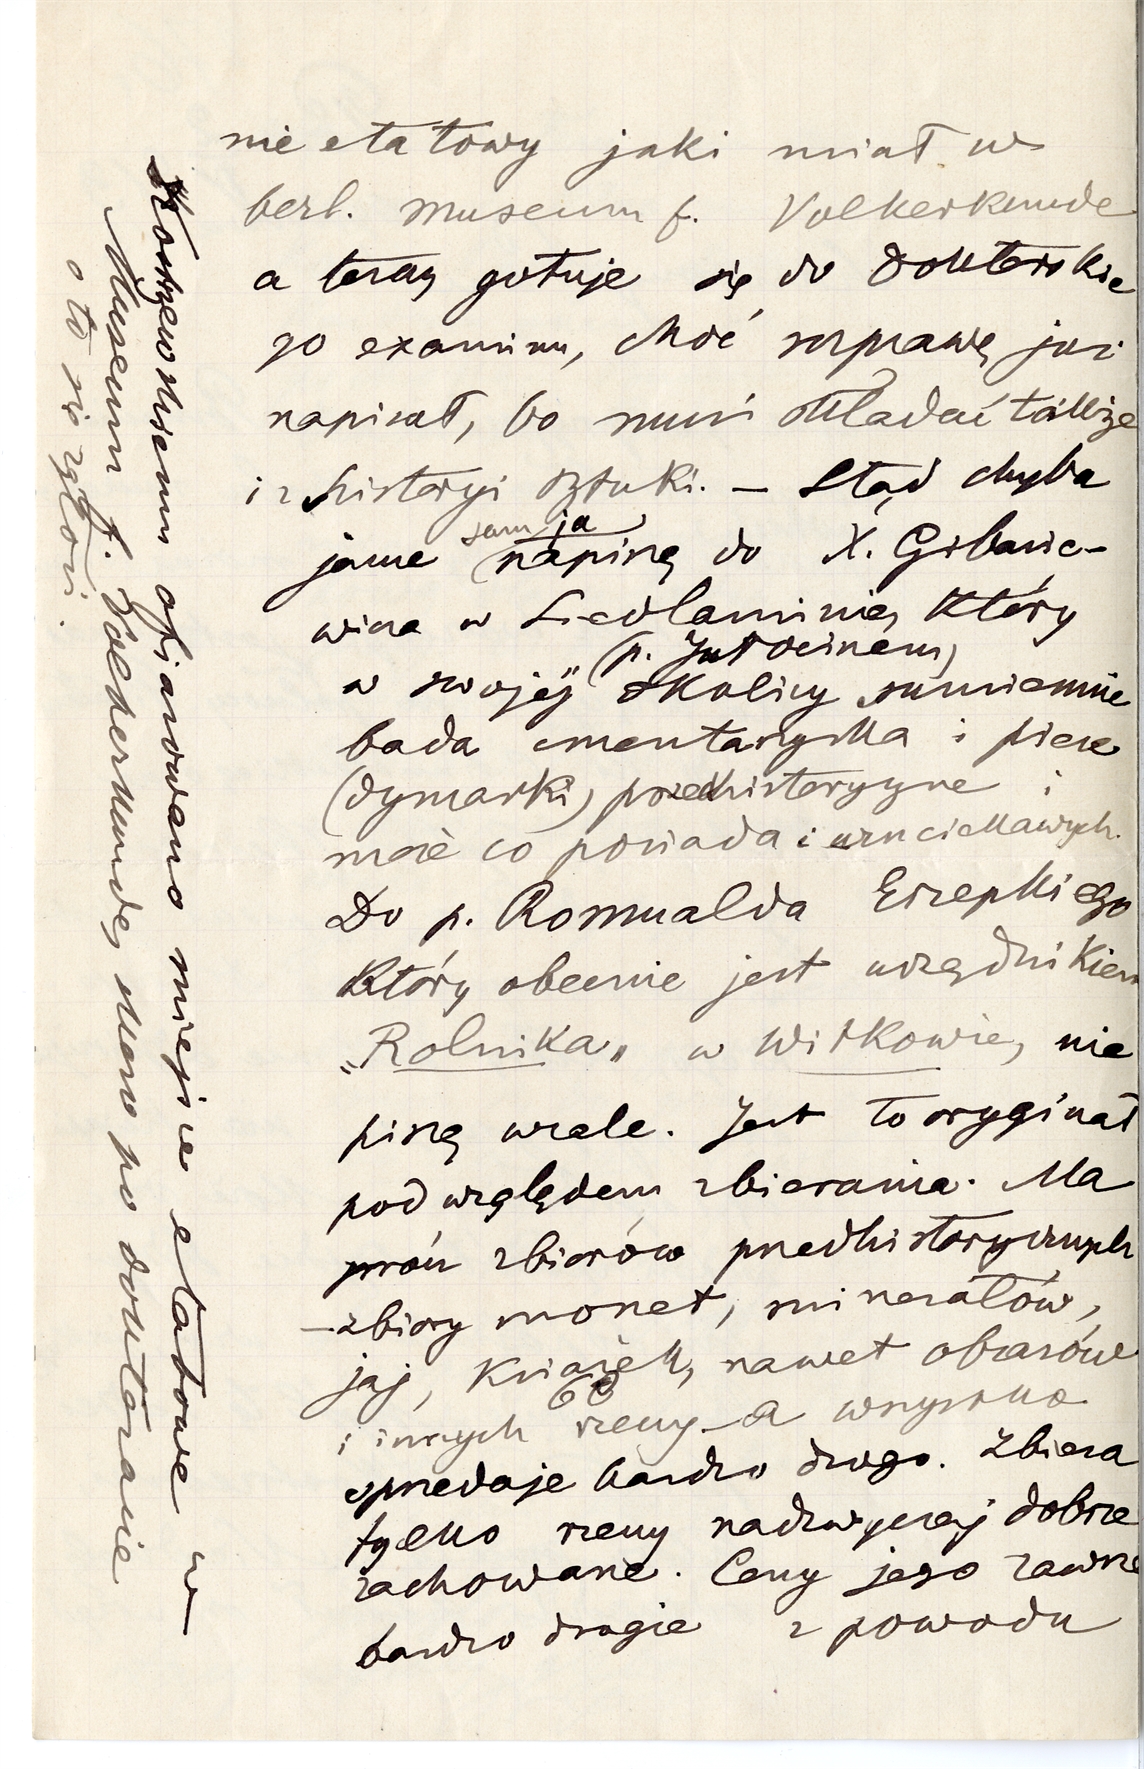 nie etatowy jaki miał w
berl. Museum f. Volkerkunde
a teraz gotuje się do doktorskie
go examinu, choć rozprawę już
napisał, bo musi składać także
i z historyi sztuki. – Stąd chyba
sam ja
jame napiszę do X. Gibasie-
wicza w Siedlaminie, który
(p. Jarocinem)
w swojej okolicy sumiennie
bada cmentarzyska i piece
(dymarki) przedhistoryczne i
może co posiada i urn ciekawych.
Do p. Romualda Erzepkiego
który obecnie jest urzędnikiem
„Rolnika” w Witkowie, nie
piszę wcale. Jest to oryginał
pod względem zbierania. Ma
prócz zbiorów przedhistorycznych
– zbiory monet, minerałów,
jaj, książek, nawet obrazów
i innych rzeczy – a wszystko
sprzedaje bardzo drogo. Zbiera
tylko rzeczy nadzwyczaj dobrze
zachowane. Ceny jego zawsze
bardzo drogie z powodu
Kostrzewskiemu ofiarowano miejsce etatowe w
Museum f. Voelkerkunde, może po doktoracie
o to się zgłosi.